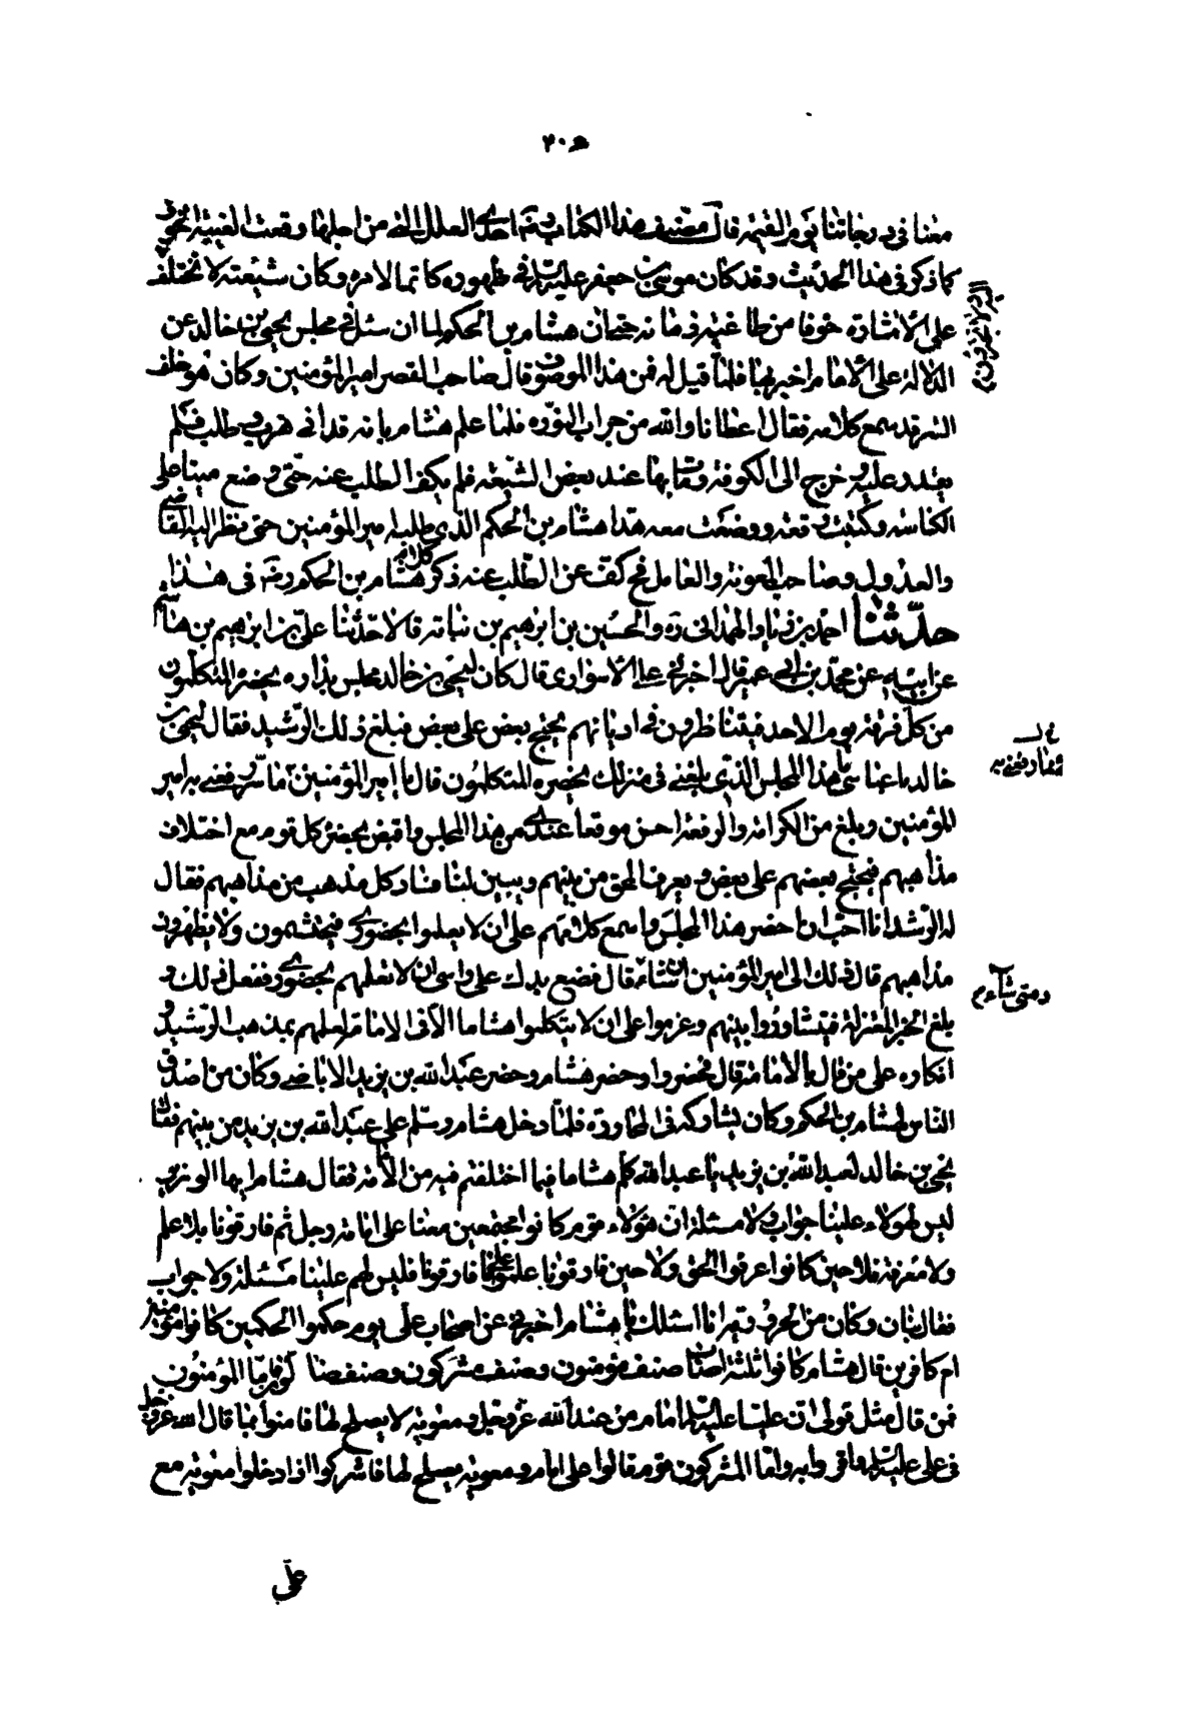 ٢٠٥
معنا في درجاتنا يوم القيمة قال مصنف هذا الكتاب ره احدى العلل التي من اجلها وقعت الغيبة الخوف
كما ذكر في هذا الحديث وقد كان موسى بن جعفر عليه السلم في ظهوره كاتما لامره وكان شيعته لا تختلف
على الاشارة خوفا من طاغية زمانه حتى ان هشام بن الحكم لما ان سئل في مجلس يحيى بن خالد عن
الدلالة على الامام اخبر بها فلما قيل له فمن هذا الموصوف قال صاحب القصر امير المؤمنين وكان هو خلف
الستر قد سمع كلامه فقال اعطانا والله من جراب النورة فلما علم هشام بانه قد اتى هرب وطلب فلم
يقدر عليه وخرج الى الكوفة ومات بها عند بعض الشيعة فلم يكف الطلب عنه حتى وضع ميتا على
الكناسة وكتبت رقعة ووضعت معه هذا هشام بن الحكم الذي طلبه امير المؤمنين حتى نظر اليه القاضي
والعدول وصاحب المعونة والعامل فح كف عن الطلب عنه ذكر كلام هشام بن الحكم ره في هذا
حدثنا احمد بن زياد الهمداني ره والحسين بن ابرهيم بن نباتة قالا حدثنا علي بن ابرهيم بن هاشم
عن ابيه عن محمد بن ابي عمير قال اخبرني علي الاسواري قال كان ليحيى بن خالد مجلس بداره يحضره المتكلمون
من كل فرقة يوم الاحد فيتناظرون في اديانهم يحتج بعض على بعض فبلغ ذلك الرشيد فقال ليحيى بن
خالد يا عباسي ما هذا المجلس الذي بلغني في منزلك يحضره المتكلمون قال يا امير المؤمنين ما شيء رفعني به امير
المؤمنين وبلغ من الكرامة والرفعة احسن موقعا عندي من هذا المجلس يحضره كل قوم مع اختلاف
مذاهبهم فيحتج بعضهم على بعض ويعرف المحق من بينهم ويبين لنا فساد كل مذهب من مذاهبهم فقال
له الرشيد انا احب ان احضر هذا المجلس واسمع كلامهم على ان لا يعلموا بحضوري فيحتشمون ولا يظهرون
مذاهبهم قال ذلك الى امير المؤمنين ان شاء قال فضع يدك على راسي ان لا تعلمهم بحضوري ففعل ذلك و
بلغ الخبر المعتزلة فتشاوروا بينهم وعزموا على ان لا يتكلموا هشاما الا في الامامة لعلمهم بمذهب الرشيد و
انكاره على من قال بالامامة قال فحضروا وحضر هشام وحضر عبد الله بن يزيد الاباضي وكان من اصدق
الناس لهشام بن الحكم وكان يشاركه في المحاورة فلما دخل هشام وسلم على عبد الله بن يزيد من بينهم فقال
يحيى بن خالد لعبد الله بن يزيد يا عبد الله كلم هشاما فيما اختلفتم فيه من الامامة فقال هشام ايها الوزير
ليس لهؤلاء علينا جواب ولا مسئلة ان هؤلاء قوم كانوا مجتمعين معنا على امامة رجل ثم فارقونا بلا علم
ولا معرفة فلا حين كانوا عرفوا الحق ولا حين فارقونا علموا على ما فارقونا فليس لهم علينا مسئلة ولا جواب
فقال بنان وكان من الحرورية انا اسئلك يا هشام اخبرني عن اصحاب علي يوم حكموا الحكمين كانوا مؤمنين
ام كافرين قال هشام كانوا ثلثة اصناف صنف مؤمنون وصنف مشركون وصنف ضلال فاما المؤمنون
فمن قال مثل قولي ان عليا عليه السلم امام من عند الله عز وجل ومعوية لا يصلح لها فامنوا بما قال الله عز وجل
في علي عليه السلم واقروا به واما المشركون فقوم قالوا علي امام ومعوية يصلح لها فاشركوا اذ ادخلوا معوية مع
ومتى شاء م
علي